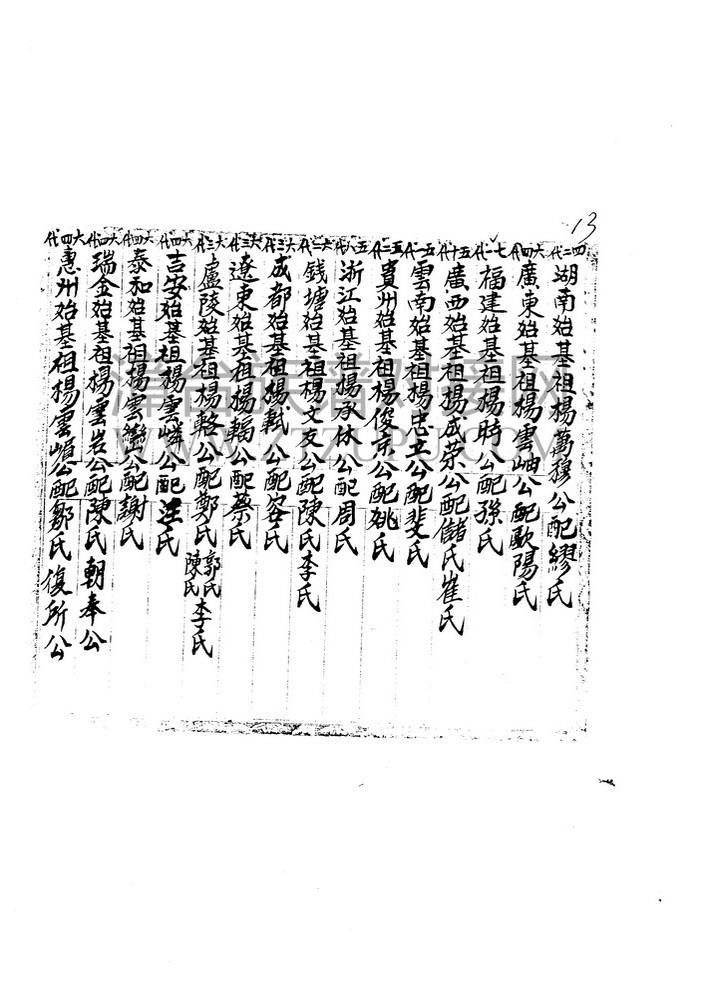 13
四二代 湖南始基祖楊萬穆公配繆氏
六四代 廣東始基祖楊雲岫公配歐陽氏
七一代 福建始基祖楊時公配孫氏
五十代 廣西始基祖楊成荣公配儲氏崔氏
五一代 雲南始基祖楊忠五公配斐氏
五二代 貴州始基祖楊俊京公配姚氏
五八代 浙江始基祖楊承休公配周氏
六二代 钱塘始基祖楊文友公配陳氏李氏
六三代 成都始基祖楊軾公配容氏
六三代 遼東始基祖楊輻公配蔡氏
六三代 盧陵始基祖楊輅公配鄭氏郭氏陳氏李氏
六四代 吉安始基祖楊雲嶙公配汪氏
六四代 泰和始基祖楊雲公配謝氏
六四代 瑞金始基祖楊雲岩公配陳氏朝奉公
六四代 惠州始基祖楊雲公配鄒氏復所公